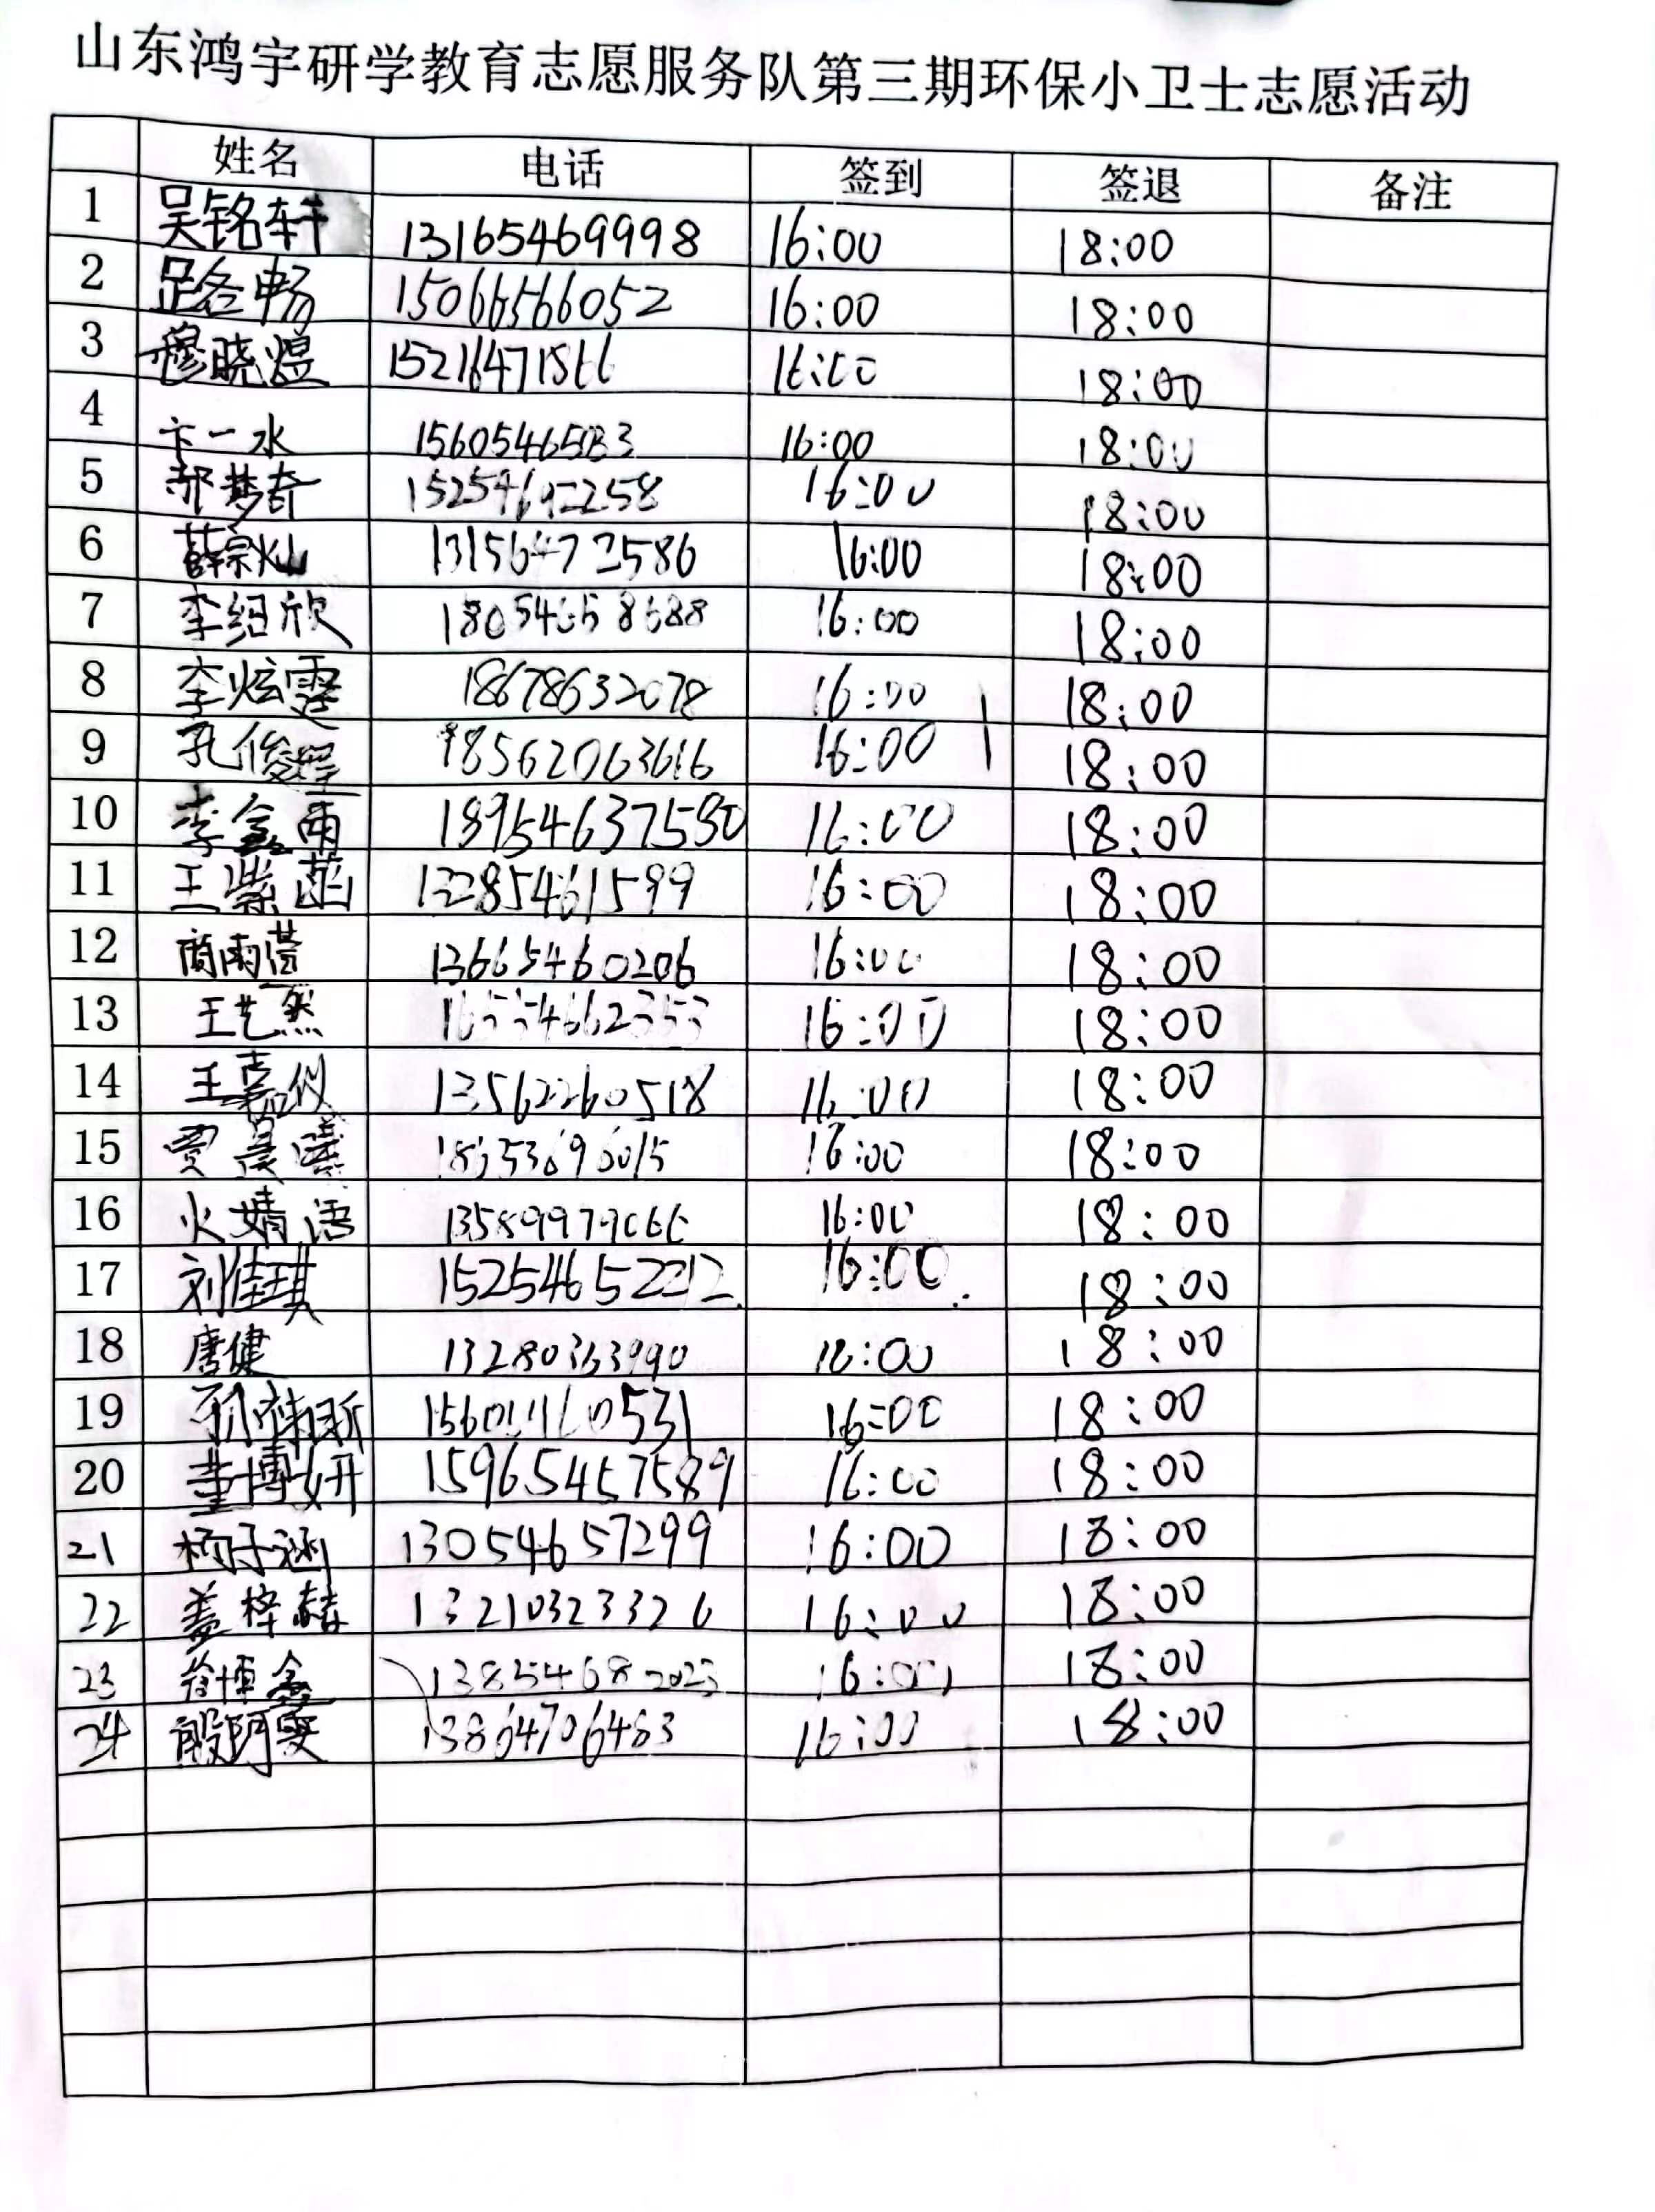 山东鸿宇研学教育志愿服务队第三期环保小卫士志愿活动
姓名 电话 签到 签退 备注
1 吴铭轩 13165469998 16:00 18:00
2 路畅 15066566052 16:00 18:00
3 穆晓煜 15216471566 16:00 18:00
4 卞一水 15605465083 16:00 18:00
5 郝梦奇 15254692258 16:00 18:00
6 薛宗灿 13156472586 16:00 18:00
7 李绍欣 18054658688 16:00 18:00
8 李炫霆 18678632078 16:00 18:00
9 孔俊 18562063616 16:00 18:00
10 李鑫雨 18954637580 16:00 18:00
11 王紫菡 13285461599 16:00 18:00
12 商雨萱 13665460206 16:00 18:00
13 王艺然 16:00 18:00
14 王嘉仪 13562260518 16:00 18:00
15 贾晨曦 16:00 18:00
16 火婧语 13589979066 16:00 18:00
17 刘佳琪 15254652212 16:00 18:00
18 唐健 13280363990 16:00 18:00
19 16:00 18:00
20 董博妍 15965457589 16:00 18:00
21 杨子涵 13054657299 16:00 18:00
22 盖梓赫 13210323326 16:00 18:00
23 徐博鑫 13854682023 16:00 18:00
24 殷阿雯 13864706483 16:00 18:00